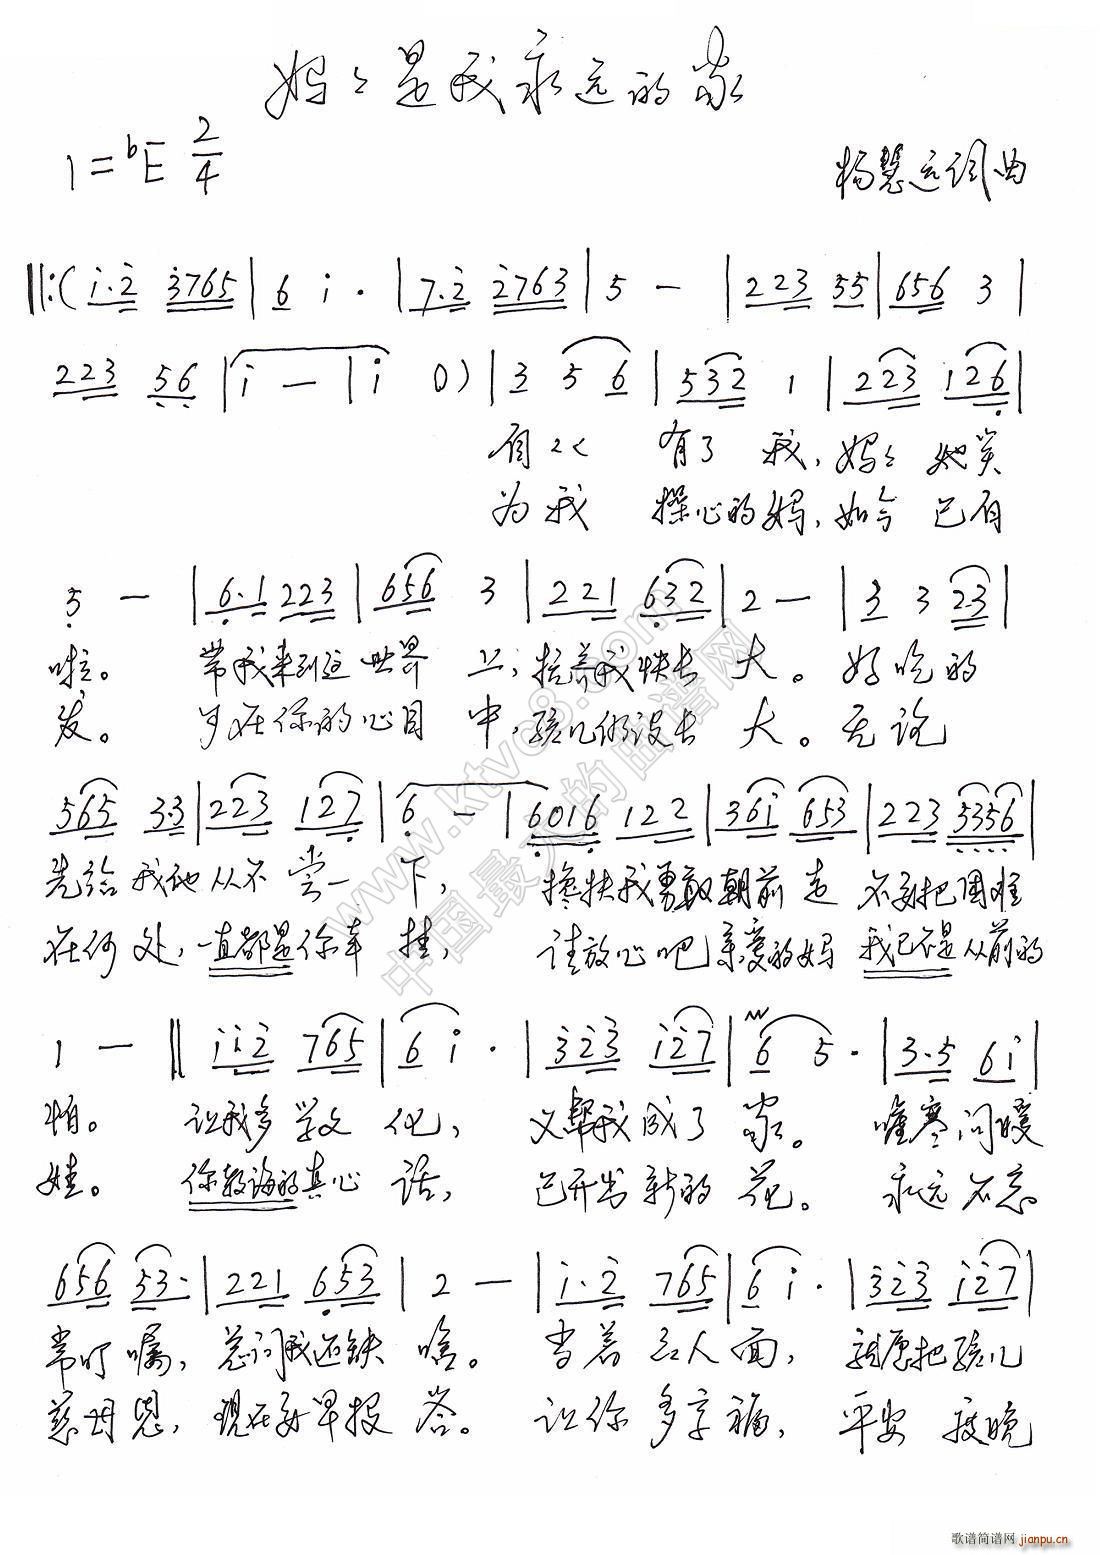 妈〻是我永远的家
1=bE 2/4
杨慧远词曲
‖:( i·2 3765 | 6 i · | 7·2 2763 | 5 — | 223 55 | 656 3 |
223 56 | i — | i 0) | 3 5 6 | 532 1 | 223 126 |
自从 有了 我, 妈〻 她笑
为我 操心的妈, 如今 已有
5 — | 6·1 223 | 656 3 | 221 632 | 2 — | 3 3 23 |
啦。 带我来到这世界 上, 抚养我快长 大。 好吃的
发。 步在你的心目 中, 孩儿仍没长 大。 无论
565 3·3 | 223 127 | 6 — | 6016 122 | 36i 653 | 223 5356 |
先给我他从不尝一 下, 搀扶我勇敢朝前走 不要把困难
在何处, 一直都是你牵 挂, 请放心吧亲爱的妈 我已不是从前的
1 — ‖ ii2 765 | 6 i · | 323 i27 | 6 5 · | 3·5 6i |
怕。 让我多学文 化, 又帮我成了 家。 嘘寒问暖
娃。 你教诲的真心 话, 已开出新的 花。 永远不忘
656 53· | 221 653 | 2 — | i·2 765 | 6 i · | 323 i27 |
常叮嘱, 总问我还缺 啥。 当着众人面, 就愿把孩儿
慈母恩, 现在要早报 答。 让你多享福, 平安度晚
www.ktvc8.com
中国最大的曲谱网
歌谱简谱网
jianpu.cn